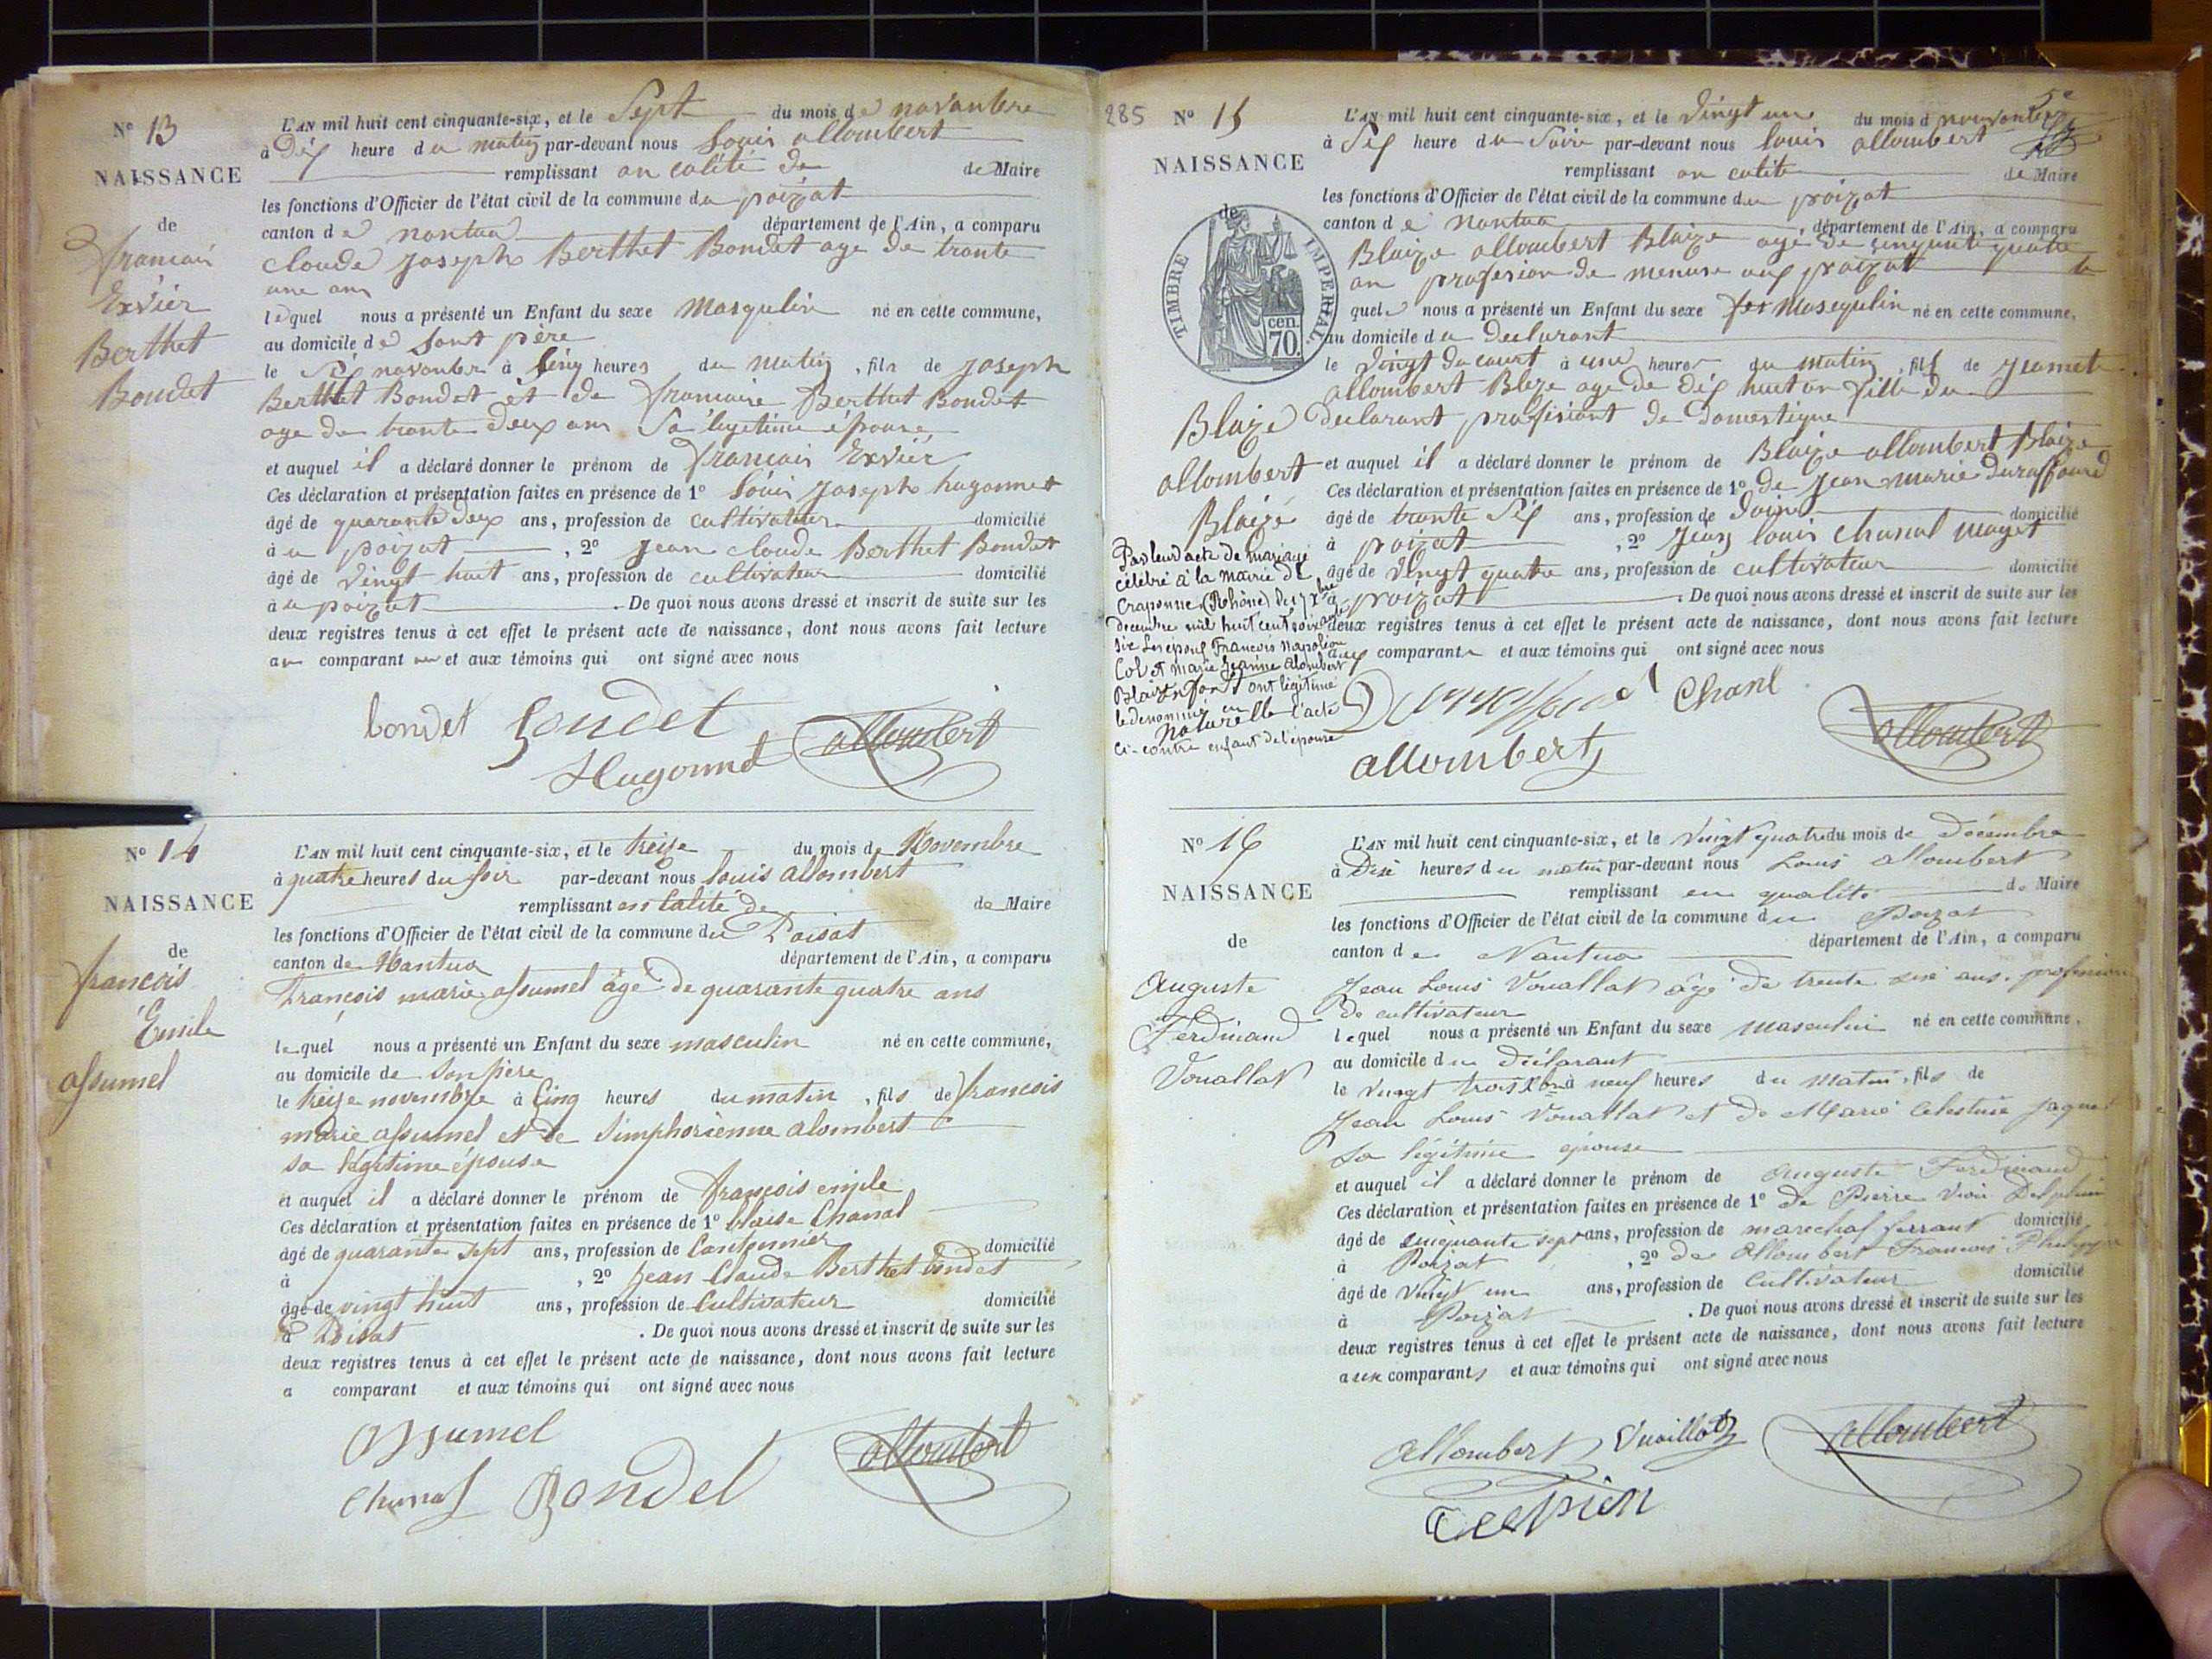 N° 13
NAISSANCE
de
francois
Exsvier
Berthet
Bondet
L'AN mil huit cent cinquante-six, et le Sept du mois de novanbre
à Dix heure du matin par-devant nous Louis allombert
remplissant an calité de de Maire
les fonctions d'Officier de l'état civil de la commune du poizat
canton de nantua département de l'Ain, a comparu
Claude Joseph Berthet Bondet age de trante
une ans
lequel nous a présenté un Enfant du sexe Masqulin né en cette commune,
au domicile de sont père
le Six novanbre à Cinq heures du matin, fils de Joseph
Berthet Bondet et de francoise Berthet Bondet
age de trante deux ans Sa légitime épouse
et auquel il a déclaré donner le prénom de francois Exsvier
Ces déclaration et présentation faites en présence de 1° Louis Joseph hugonnet
âgé de quarante deux ans, profession de cultivateur domicilié
à u poizat, 2° Jean claude Berthet Bondet
âgé de vingt huit ans, profession de cultivateur domicilié
à u poizat. De quoi nous avons dressé et inscrit de suite sur les
deux registres tenus à cet effet le présent acte de naissance, dont nous avons fait lecture
au comparant et aux témoins qui ont signé avec nous
bondet Bondet
Hugonnet allombert
N° 14
NAISSANCE
de
francois
Emile
assumel
L'AN mil huit cent cinquante-six, et le treize du mois de Novembre
à quatre heures du soir par-devant nous louis allombert
remplissant en calité de de Maire
les fonctions d'Officier de l'état civil de la commune du Poisat
canton de Nantua département de l'Ain, a comparu
François marie assumel âgé de quarante quatre ans
lequel nous a présenté un Enfant du sexe masculin né en cette commune,
au domicile de son père
le treize novembre à cinq heures du matin, fils de francois
marie assumel et de Simphorienne alombert
sa légitime épouse
et auquel il a déclaré donner le prénom de françois emile
Ces déclaration et présentation faites en présence de 1° blaise Chanal
âgé de quarante sept ans, profession de Cantonnier domicilié
à, 2° Jean Claude Berthet bondet
âgé de vingt huit ans, profession de Cultivateur domicilié
à Poisat. De quoi nous avons dressé et inscrit de suite sur les
deux registres tenus à cet effet le présent acte de naissance, dont nous avons fait lecture
a comparant et aux témoins qui ont signé avec nous
assumel
Chanal Bondet allombert
285
5e
N° 15
NAISSANCE
de
TIMBRE IMPERIAL
70 cen.
Blaize
allombert
Blaize
Par leur acte de mariage
célébré à la mairie de
Craponne (Rhône) le 17 Xbre
decembre mil huit cent soixante
six les époux Francois Napoléon
Col et Marie Jeanne Alombert
Blaize ont légitimé
le denommé en l'acte
ci-contre enfant naturelle de l'épouse
L'AN mil huit cent cinquante-six, et le vingt une du mois d novanbre
à Six heure du Soire par-devant nous louis allombert
remplissant an calite de Maire
les fonctions d'Officier de l'état civil de la commune du poizat
canton de nantua département de l'Ain, a comparu
Blaize allombert Blaize agé de cinquante quatre
an profesion de menuse au poizat le
quel nous a présenté un Enfant du sexe Masequlin né en cette commune,
au domicile du Declarant
le vingt du court à une heure du matin, fils de Jeannete
allombert Blaze age de dix huit an fille du
declarant profisiont de domestique
et auquel il a déclaré donner le prénom de Blaize allombert Blaize
Ces déclaration et présentation faites en présence de 1° De Jean marie duraffourd
âgé de trante Six ans, profession de domicilié
à poizat, 2° Jean louis Chanal mayet
âgé de vingt quatre ans, profession de cultivateur domicilié
à poizat. De quoi nous avons dressé et inscrit de suite sur les
deux registres tenus à cet effet le présent acte de naissance, dont nous avons fait lecture
aux comparant et aux témoins qui ont signé avec nous
Chanl
allombert allombert
N° 16
NAISSANCE
de
Auguste
Ferdinand
Vouallat
L'AN mil huit cent cinquante-six, et le vingt quatre du mois de Décembre
à Dix heures du matin par-devant nous Louis allombert
remplissant en qualité de Maire
les fonctions d'Officier de l'état civil de la commune du Poizat
canton de Nantua département de l'Ain, a comparu
Jean Louis Vouallat âgé de trente six ans profession
de cultivateur
lequel nous a présenté un Enfant du sexe masculin né en cette commune,
au domicile du Déclarant
le vingt trois Xbre à neuf heures du matin, fils de
Jean Louis Vouallat et de Marie Celestine Jaquet
Sa légitime épouse
et auquel il a déclaré donner le prénom de Auguste Ferdinand
Ces déclaration et présentation faites en présence de 1° De Pierre
âgé de cinquante sept ans, profession de marechal ferrant domicilié
à Poizat, 2° de Allombert Francois
âgé de vingt un ans, profession de Cultivateur domicilié
à Poizat. De quoi nous avons dressé et inscrit de suite sur les
deux registres tenus à cet effet le présent acte de naissance, dont nous avons fait lecture
aux comparants et aux témoins qui ont signé avec nous
allombert Vuaillat allombert